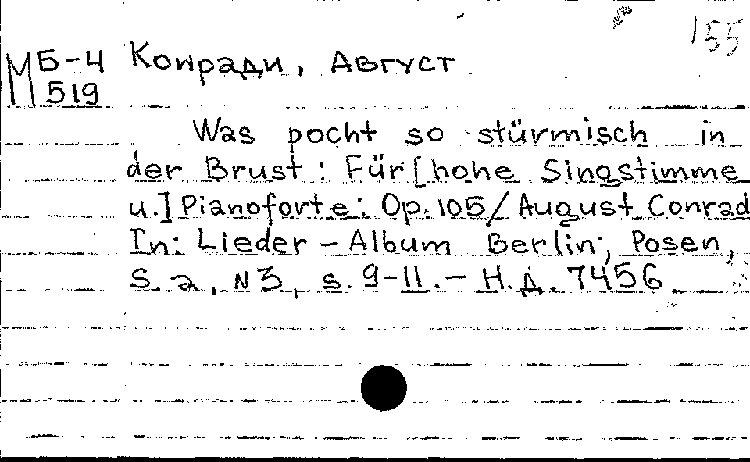 155
МБ-4 Конради, Август
519
Was pocht so stürmisch in
der Brust: Für [hohe Singstimme
u.] Pianoforte: Op. 105/August Conrad
In: Lieder-Album Berlin; Posen,
S. a, N3, s. 9-11. - Н.Д. 7456